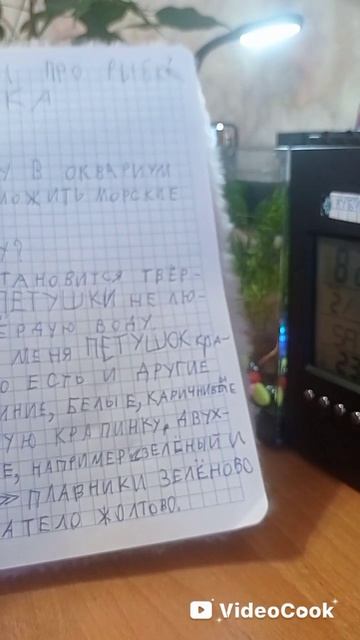 ПРО РЫБК
КА
У В ОКВАРИУМ
ЛОЖИТЬ МОРСКИЕ
У?
ТАНОВИТСЯ ТВЁР-
ПЕТУШКИ НЕ ЛЮ-
ЁРДУЮ ВОДУ.
МЕНЯ ПЕТУШОК КРА-
О ЕСТЬ И ДРУГИЕ
ИНИЕ, БЕЛЫЕ, КАРИЧНИВЫЕ
УЮ КРАПИНКУ, ДВУХ-
Е, НАПРИМЕР ЗЕЛЁНЫЙ И
ПЛАВНИКИ ЗЕЛЁНОВО
А ТЕЛО ЖОЛТОВО.
VideoCook